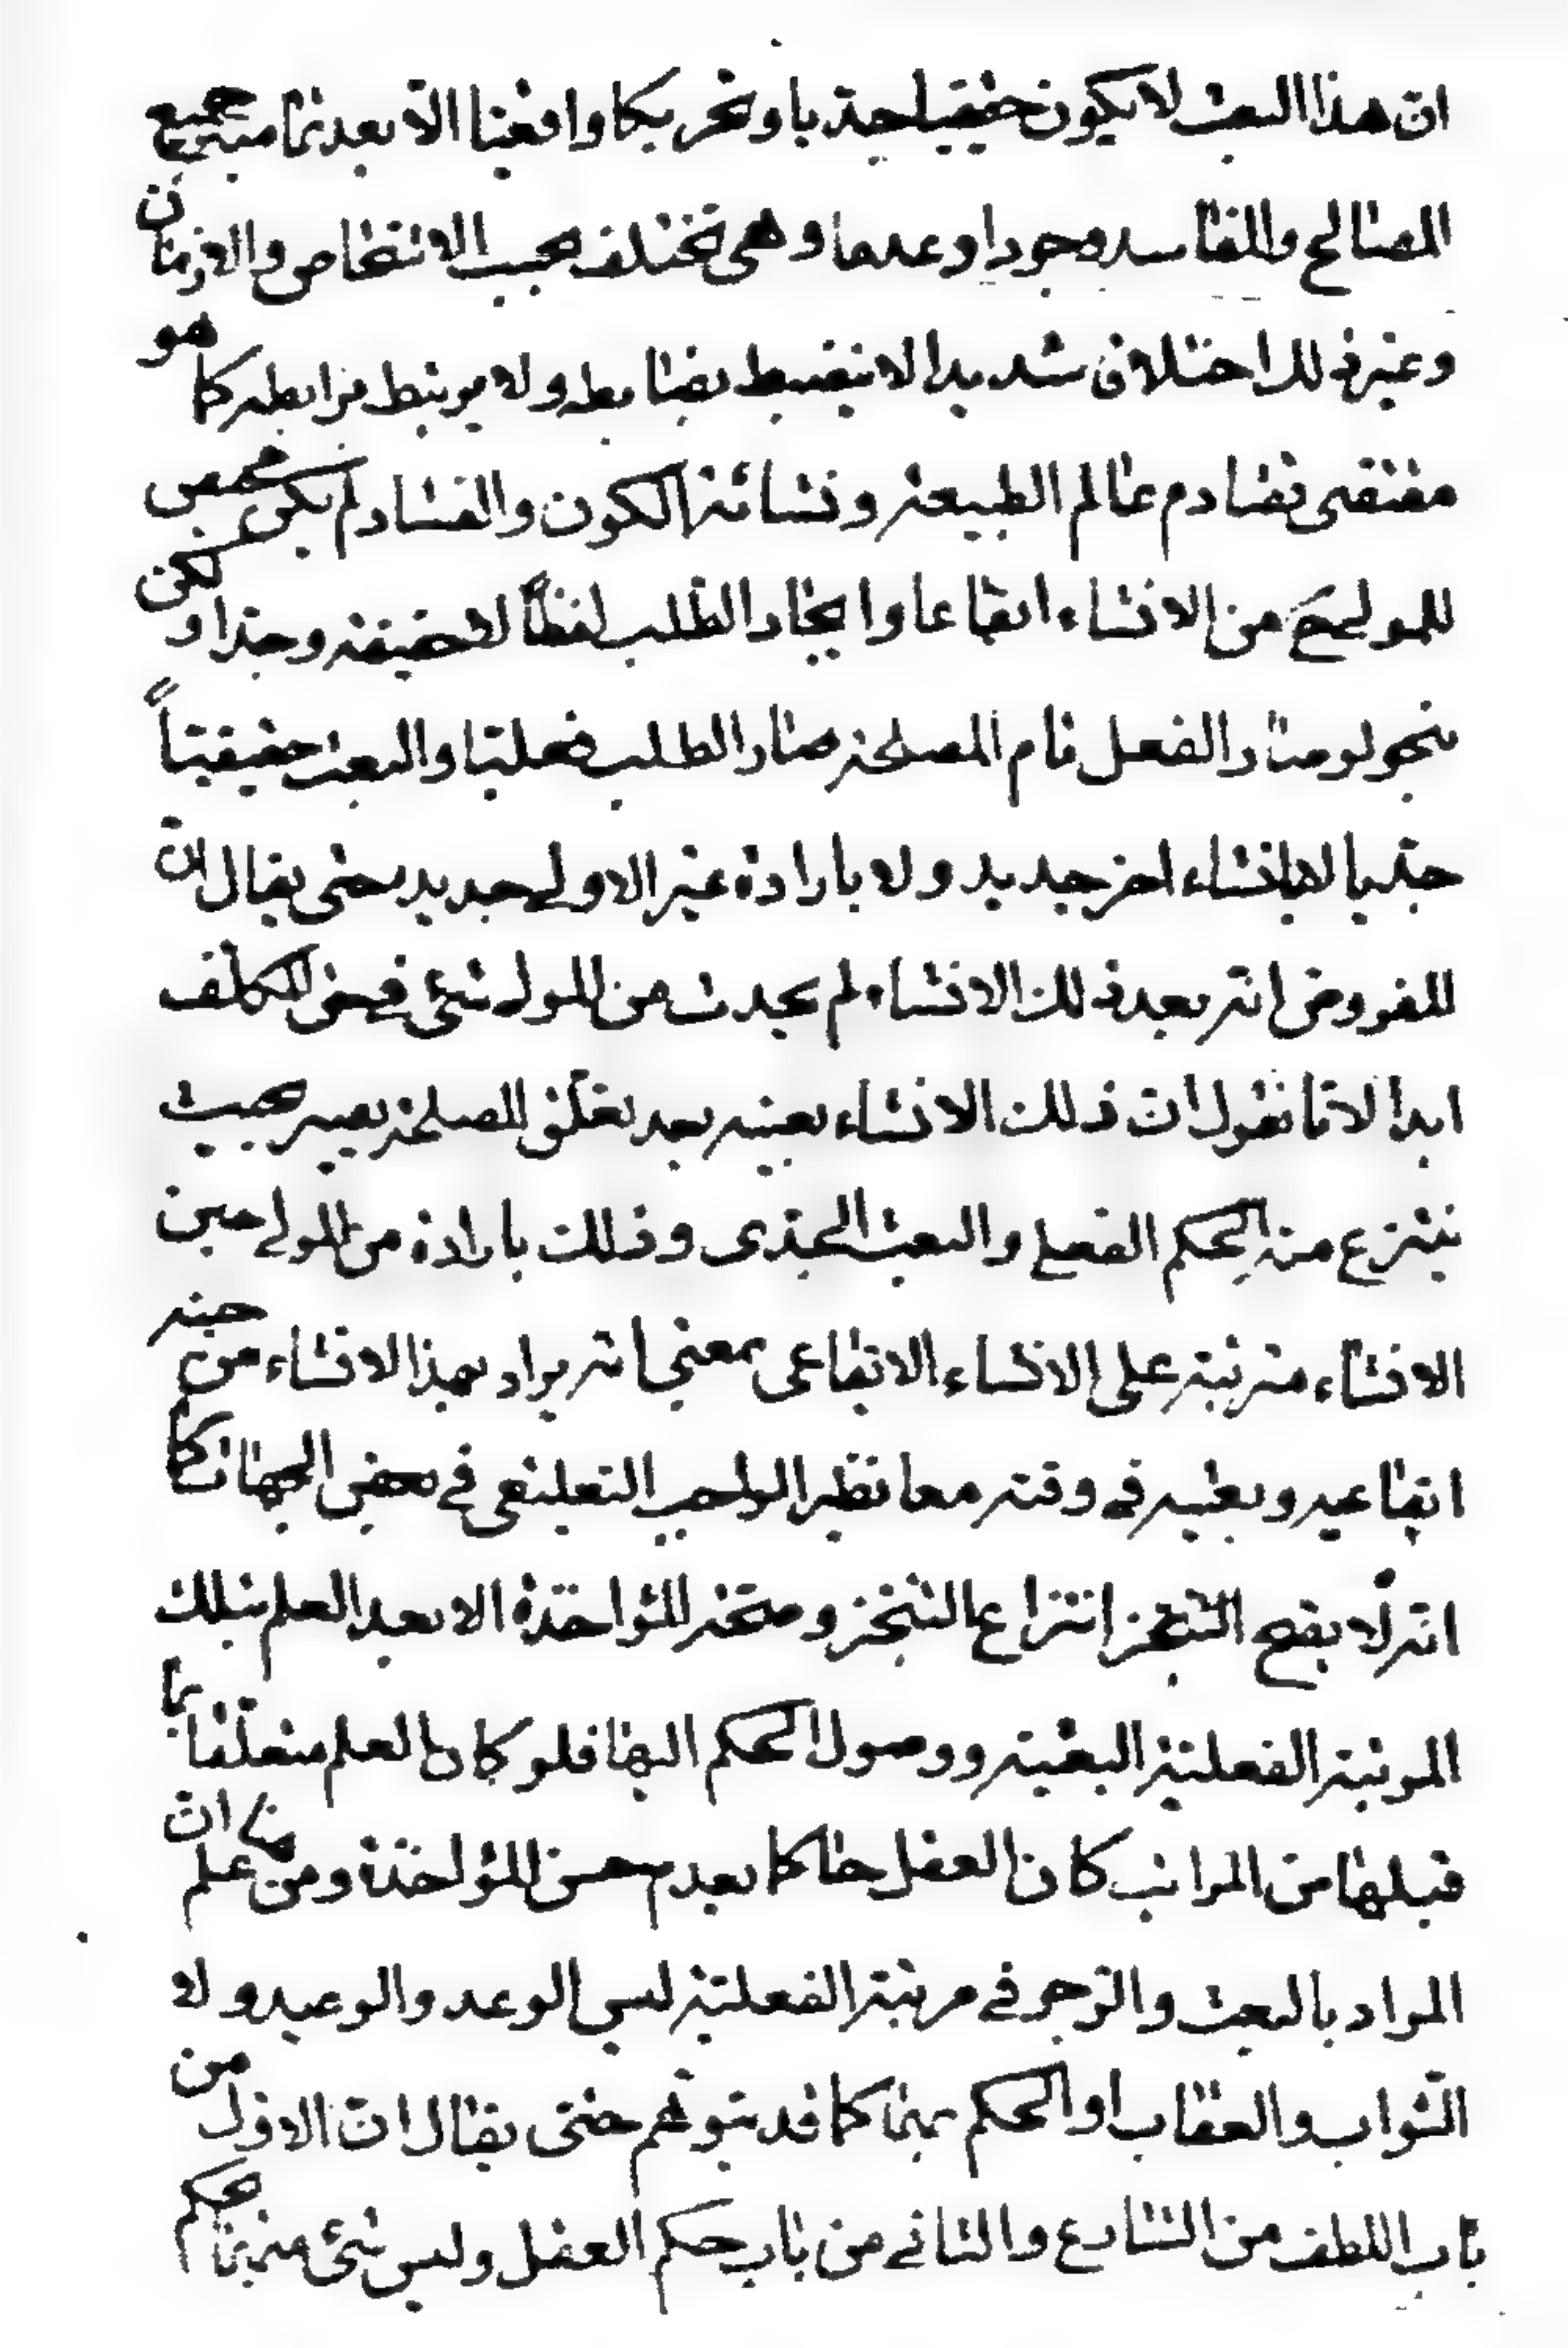 ان هذا البعث لا يكون حقيقيا جديا و تحريكا واقعيا الا بعد تمامية جميع
المصالح والمفاسد وجودا وعدما وهى تختلف بحسب الاشخاص والازمان
وغير ذلك اختلاف شديدا لا ينضبط بضابطه ولا يرتبط برابطه كما هو
مقتضى تصادم عالم الطبيعة ونشائة الكون والفساد لم يكن محيص
للمولى ح من الانشاء ايقاعا وايجاد الطلب لفظاً لا حقيقة وجدا ولكن
بنحو لو صار الفعل تام المصلحة صار الطلب فعليا والبعث حقيقياً
جديا لا بانشاء اخر جديد ولا بارادة غير الاولى جديد حتى يقال ان
المفروض انه بعد ذلك الانشاء لم يحدث من المولى شئ في حق المكلف
ابدا لانا نقول ان ذلك الانشاء بعينه بعد تعلق المصلحة يصير بحيث
ينتزع منه الحكم الفعلي والبعث الجدى وذلك بارادة من المولى حين
الانشاء مترتبة على الانشاء الايقاعى بمعنى انه يراد بهذا الانشاء من حينه
ايقاعيه وبعثيه في وقته معا نظير الواجب التعليقى في بعض الجهات كما
انه لا يصح التنجز انتزاع التنجز وصحة المؤاخذة الا بعد العلم بتلك
المرتبة الفعلية البعثية ووصول الحكم اليها فلو كان العلم متعلقا بما
قبلها من المراتب كان العقل حاكما بعدم حسن المؤاخذة ومن هنا علم ان
المراد بالبعث والزجر في مرتبة الفعلية ليس الوعد والوعيد ولا
الثواب والعقاب او الحكم بهما كما قد يتوهم حتى يقال ان الاول من
باب اللطف من الشارع والثاني من باب حكم العقل وليس شئ منهما بحكم